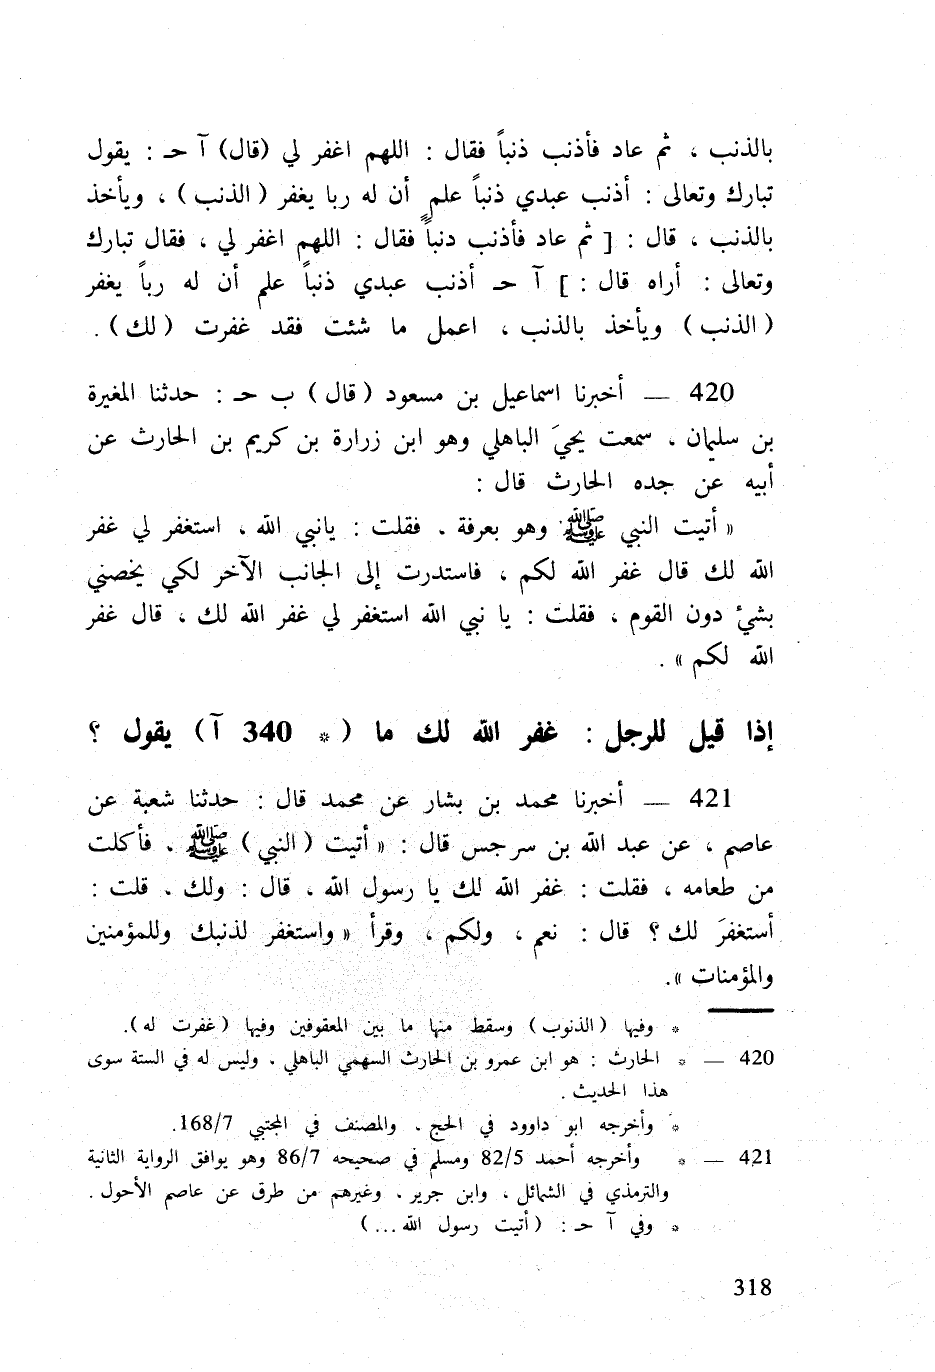 بالذنب ، ثم عاد فأذنب ذنباً فقال : اللهم اغفر لي (قال) آ حـ : يقول
تبارك وتعالى : أذنب عبدي ذنباً علم أن له ربا يغفر ( الذنب ) ، ويأخذ
بالذنب ، قال : [ ثم عاد فأذنب دنباً فقال : اللهم اغفر لي ، فقال تبارك
وتعالى : أراه قال : ] آ حـ أذنب عبدي ذنباً علم أن له رباً يغفر
( الذنب ) ويأخذ بالذنب ، اعمل ما شئت فقد غفرت ( لك ) .
420 — أخبرنا اسماعيل بن مسعود ( قال ) ب حـ : حدثنا المغيرة
بن سليمان ، سمعت يحيَ الباهلي وهو ابن زرارة بن كريم بن الحارث عن
أبيه عن جده الحارث قال :
« أتيت النبي ﷺ وهو بعرفة . فقلت : يانبي الله ، استغفر لي غفر
الله لك قال غفر الله لكم ، فاستدرت إلى الجانب الآخر لكي يخصني
بشيء دون القوم ، فقلت : يا نبي الله استغفر لي غفر الله لك ، قال غفر
الله لكم » .
إذا قيل للرجل : غفر الله لك ما ( * 340 آ ) يقول ؟
421 — أخبرنا محمد بن بشار عن محمد قال : حدثنا شعبة عن
عاصم ، عن عبد الله بن سرجس قال : « أتيت ( النبي ) ﷺ . فأكلت
من طعامه ، فقلت : غفر الله لك يا رسول الله ، قال : ولك . قلت :
أستغفرَ لك ؟ قال : نعم ، ولكم ، وقرأ « واستغفر لذنبك وللمؤمنين
والمؤمنات » .
* وفيها ( الذنوب ) وسقط منها ما بين المعقوفين وفيها ( غفرت له ) .
420 — * الحارث : هو ابن عمرو بن الحارث السهمي الباهلي . وليس له في الستة سوى
هذا الحديث .
* وأخرجه ابو داوود في الحج . والمصنف في المجتبي 168/7 .
421 — * وأخرجه أحمد 82/5 ومسلم في صحيحه 86/7 وهو يوافق الرواية الثانية
والترمذي في الشمائل ، وابن جرير . وغيرهم من طرق عن عاصم الأحول .
* وفي آ حـ : ( أتيت رسول الله ... )
318